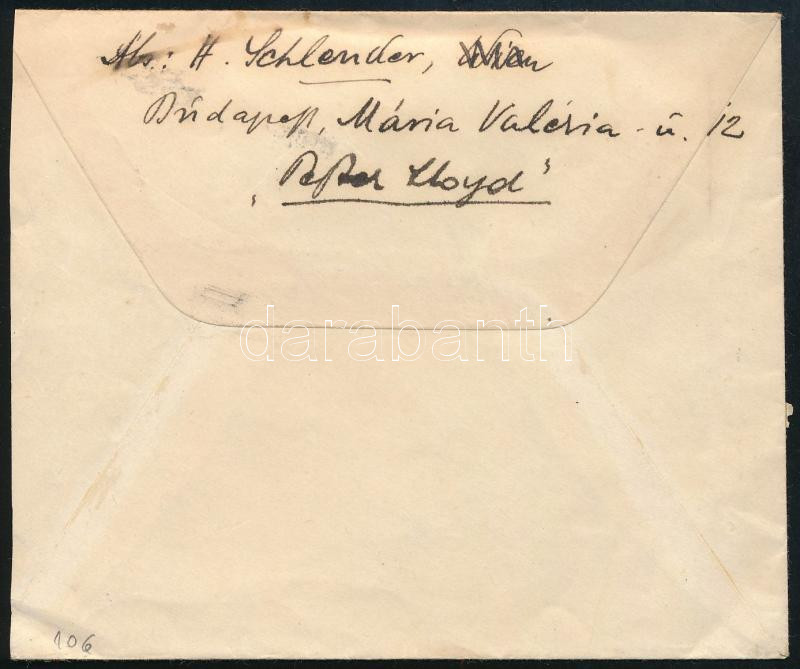 Abs: H. Schlender, Wien
Budapest, Mária Valéria-u. 12
„Pester Lloyd"
darabanth
106